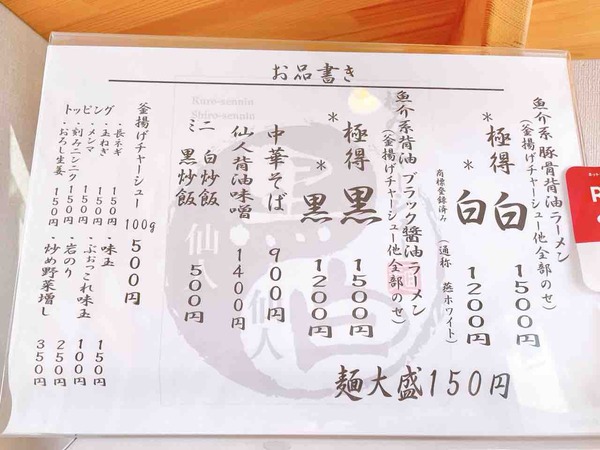 お品書き
魚介系 豚骨背油ラーメン
(釜揚げチャーシュー他全部のせ)
極得 白 1500円
* 白 1200円
商標登録済み (通称 燕ホワイト)
魚介系背油 ブラック醬油ラーメン
(釜揚げチャーシュー他全部のせ)
極得 黒 1500円
* 黒 1200円
中華そば 900円
仙人背油味噌 1400円
ミニ 白炒飯
黒炒飯 500円
釜揚げチャーシュー 100g 500円
トッピング
・長ネギ 150円
・玉ねぎ 150円
・メンマ 150円
・刻みニンニク 150円
・おろし生姜 150円
・味玉 150円
・ぶおっこれ味玉 100円
・岩のり 250円
・炒め野菜増し 350円
麺大盛150円
Kuro-sennin
Shiro-sennin
黒仙人
白仙人